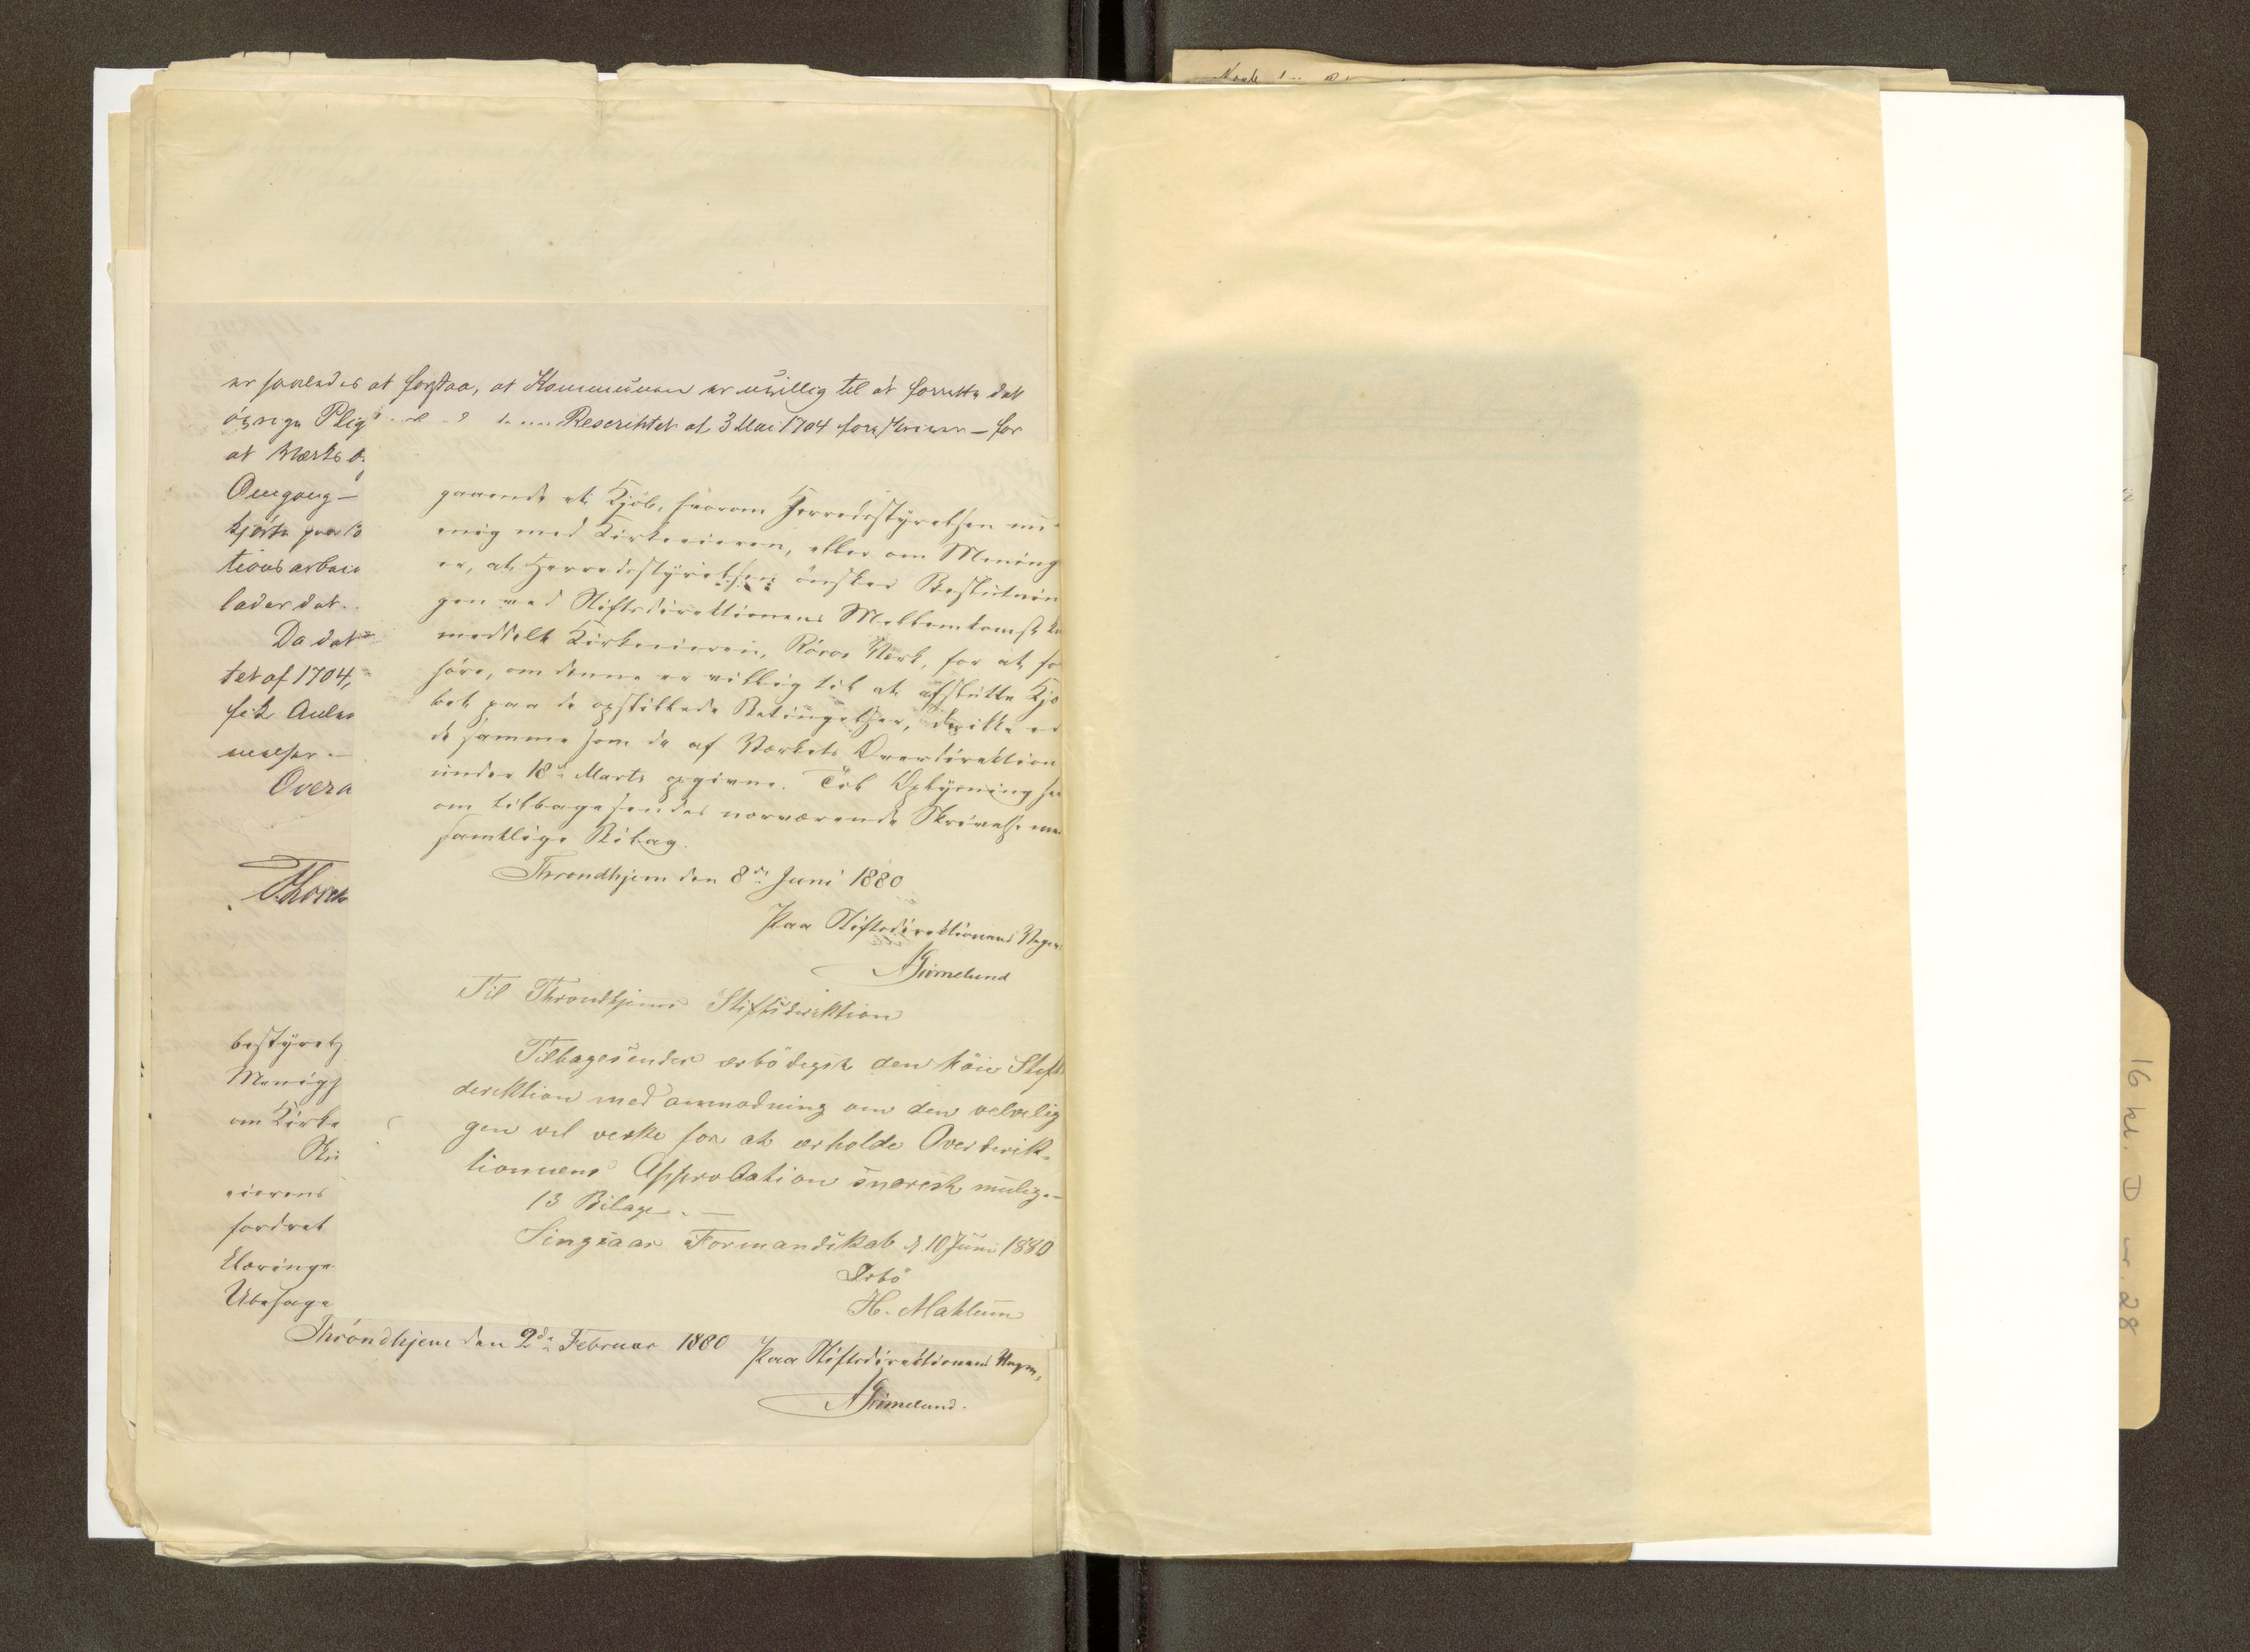 er saaledes at forstaa, at Kommunen er uvillig til at forrette det
øvrige Plig Rescriptet af 3 Mai 1704 foreskriver – for
at Værket
Omgang –
kjørte paa
tions arbei
lader det.
Da det
tet af 1704,
fik Anled
nelser. –
Overd
Thoresen
gaaende at Kjøb, hvorom Herredsstyrelsen nu
enig med Kirkeeieren, eller om Mening
er, at Herredsstyrelsen ønsker Beslutnin
gen ved Stiftsdirektionens Mellemkomst
meddelt Kirkeeieren, Röros Værk, for at
høre, om denne er villig til at afslutte Kjø
bet paa de opstillede Betingelser, hvilke er
de samme som de af Værkets Overdirektion
under 18de Marts opgivne. Til Oplysning her
om tilbagesendes nærværende Skrivelse med
samtlige Bilag.
Throndhjem den 8de Juni 1880
Paa Stiftsdirektionens Vegne
Grimelund
Til Throndhjems Stiftsdirektion
Tilbagesendes ærbödigst den höie Stifts
direktion med anmodning om den velvilig
gen vil virke for at erholde Overdirek-
tionnens Approbation snarest mulig. –
13 Bilage. –
Singsaas Formandskab d. 10 Juni 1880
Ærbö
H. Mahlum
bestyrels
Menigh
om Kirke
eierens
fordret
klæringe
Ubesage
Throndhjem den 2de Februar 1880
Paa Stiftsdirektionens Vegne,
Grimelund.
16 kl. D nr. 28